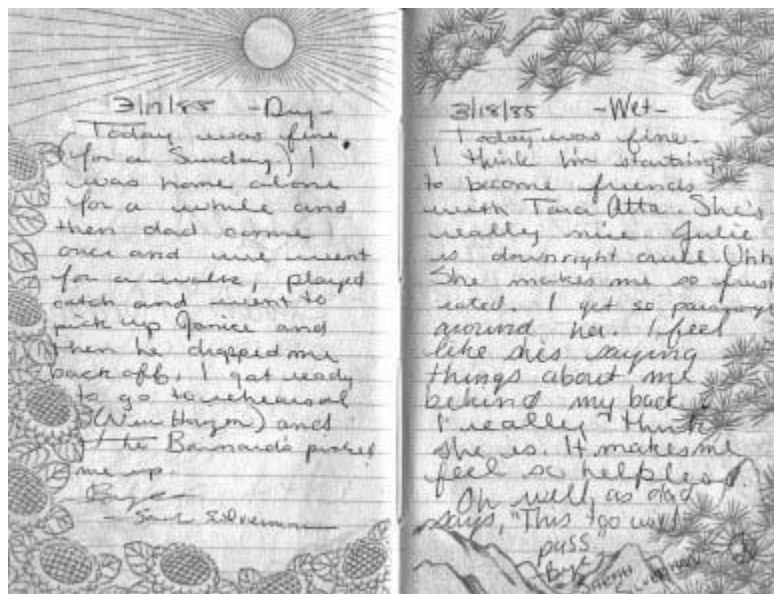 3/17/85 -Dry-
Today was fine.
(for a Sunday.) I
was home alone
for a while and
then dad came
once and we went
for a walk, played
catch and went to
pick up Janice and
then he dropped me
back off. I got ready
to go to rehearsal
(New Horizon) and
the Barnard's picked
me up.
Bye
- Sarah Silverman
3/18/85 -Wet-
Today was fine.
I think I'm starting
to become friends
with Tara Atta. She's
really nice. Julie
is downright cruel. Uhh
She makes me so frust
rated. I get so
around her. I feel
like she's saying
things about me
behind my back.
I really think
she is. It makes me
feel so helpless.
Oh well, as dad
says, "This to will
pass
-Bye
Sarah
Silverman